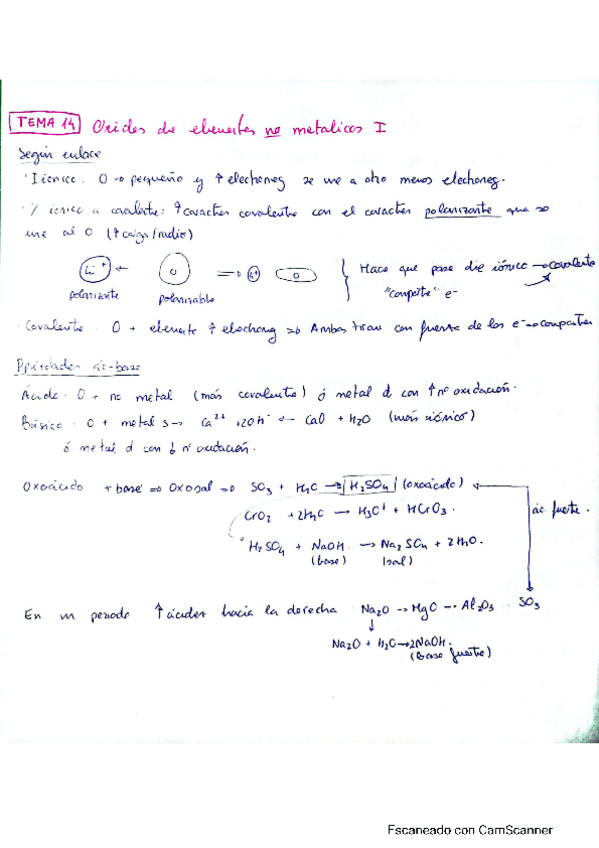 TEMA 14 Oxidos de elementos no metalicos I
Según enlace
· Iónico: O → pequeño y ↑ electroneg. se une a otro menos electroneg.
· % iónico a covalente: ↑ carácter covalente con el carácter polarizante que se
une al O (↑ carga/radio)
Li⁺ ← O ⇒ Li⁺ O } Hace que pase de iónico → covalente
polarizante polarizable "comparte" e⁻
· Covalente: O + elemento ↑ electroneg ⇒ Ambos tiran con fuerza de los e⁻ → comparten
Ppiedades ác-base
Ácido: O + no metal (más covalente) ó metal d con ↑ nº oxidación.
Básico: O + metal s → Ca²⁺ + 2OH⁻ ← CaO + H₂O (más iónico)
ó metal d con ↓ nº oxidación.
Oxoácido + base ⇒ Oxosal ⇒ SO₃ + H₂O → H₂SO₄ (oxoácido)
CrO₂ + 2H₂O → H₃O⁺ + HCrO₃. ác fuerte.
H₂SO₄ + NaOH → Na₂SO₄ + 2H₂O.
(base) (sal)
En un periodo ↑ acidez hacia la derecha Na₂O → MgO → Al₂O₃ SO₃
↓
Na₂O + H₂O → 2NaOH.
(Base fuerte)
Escaneado con CamScanner